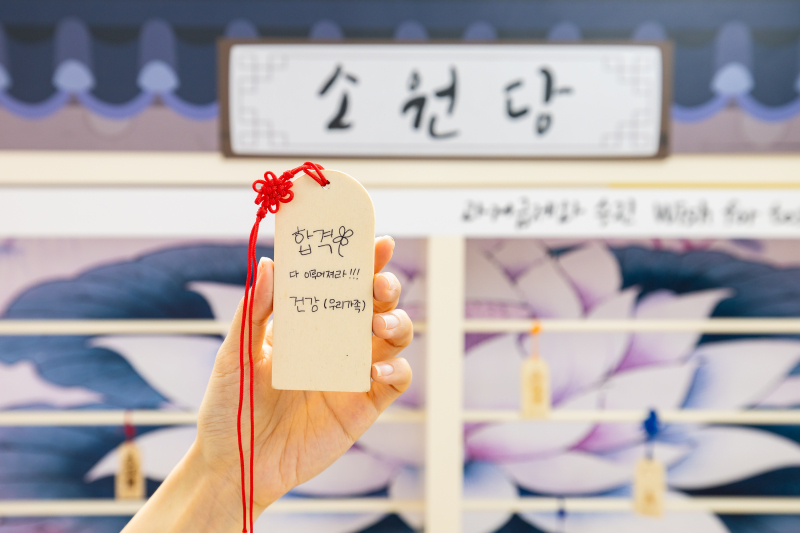 소원당
Wish for
합격
다 이루어져라!!!
건강 (우리가족)